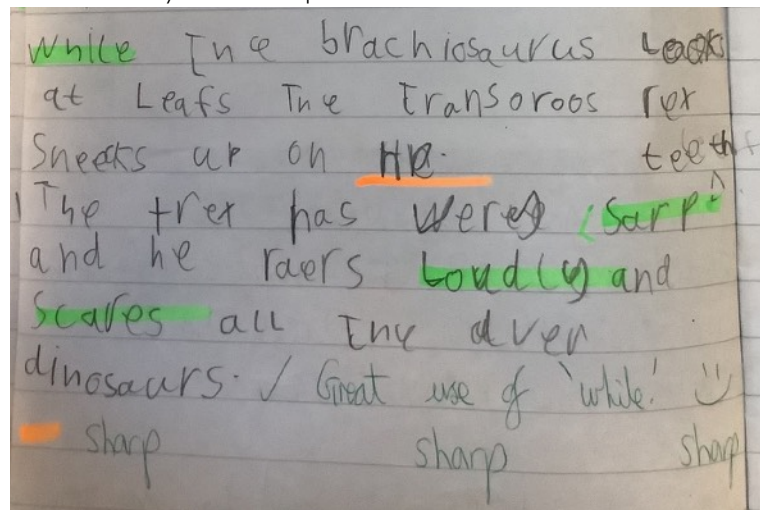 While the brachiosaurus Leaks
at Leafs The transoroos rex
Sneeks up on HR.
teeth
The trex has werey sarp
and he raers Loudly and
Scares all the dver
dinosaurs. ✓ Great use of 'while!' :)
sharp sharp sharp